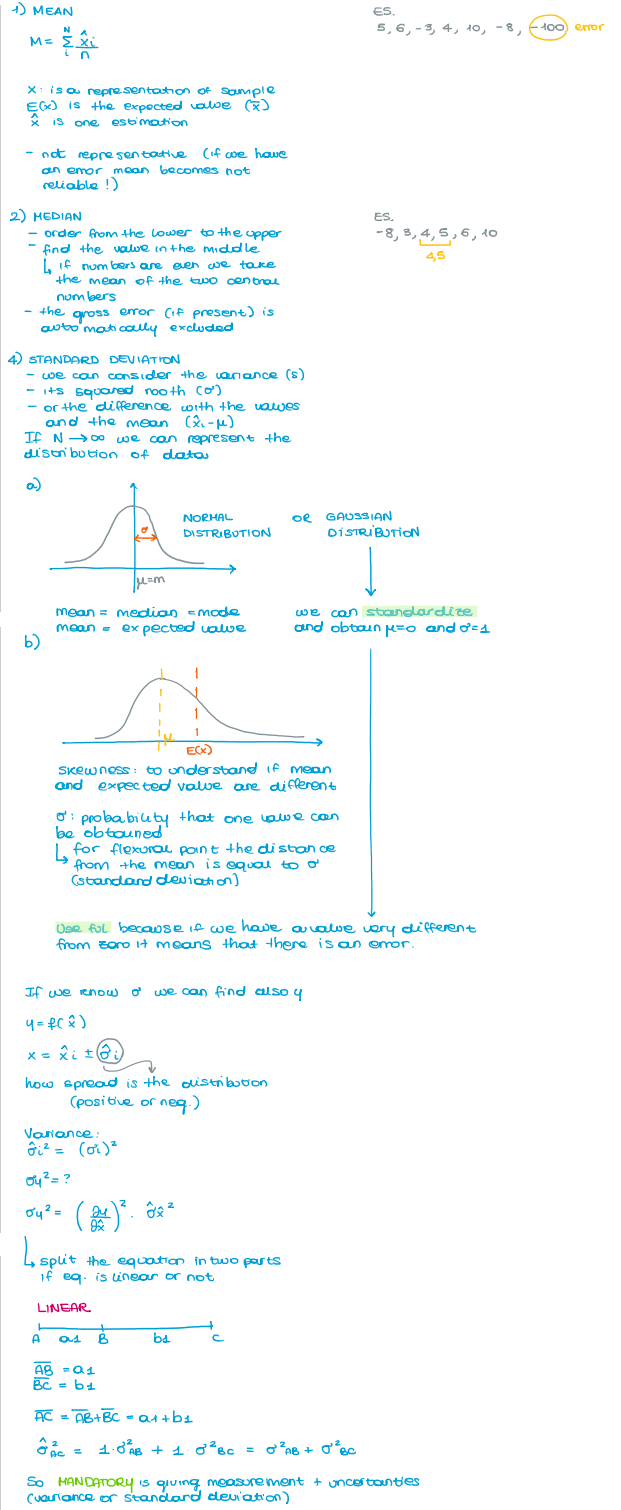 1) MEAN
M = N Σ i x̂i/n
x: is a representation of sample
E(x) is the expected value (x̄)
x̂ is one estimation
- not representative (if we have
an error mean becomes not
reliable!)
ES.
5, 6, -3, 4, 10, -8, -100 error
2) MEDIAN
- order from the lower to the upper
- find the value in the middle
↳ if numbers are even we take
the mean of the two central
numbers
- the gross error (if present) is
automatically excluded
ES.
-8, 3, 4, 5, 6, 10
4,5
4) STANDARD DEVIATION
- we can consider the variance (s)
- its squared rooth (σ)
- or the difference with the values
and the mean (x̂i-μ)
If N → ∞ we can represent the
distribution of data
a)
σ
μ=m
NORMAL OR GAUSSIAN
DISTRIBUTION DISTRIBUTION
mean = median = mode
mean = expected value
we can standardize
and obtain μ=0 and σ=1
b)
μ
E(x)
skewness: to understand if mean
and expected value are different
σ: probability that one value can
be obtained
↳ for flexural point the distance
from the mean is equal to σ
(standard deviation)
Useful because if we have a value very different
from zero it means that there is an error.
If we know σ we can find also y
y = f(x̂)
x = x̂i ± σ̂i
how spread is the distribution
(positive or neg.)
Variance:
σ̂i² = (σi)²
σy² = ?
σy² = (∂y/∂x̂)² · σ̂x̂²
↳ split the equation in two parts
if eq. is linear or not
LINEAR
A a1 B b1 C
A̅B̅ = a1
B̅C̅ = b1
A̅C̅ = A̅B̅ + B̅C̅ = a1 + b1
σ̂²AC = 1·σ²AB + 1·σ²BC = σ²AB + σ²BC
So MANDATORY is giving measurement + uncertanties
(variance or standard deviation)